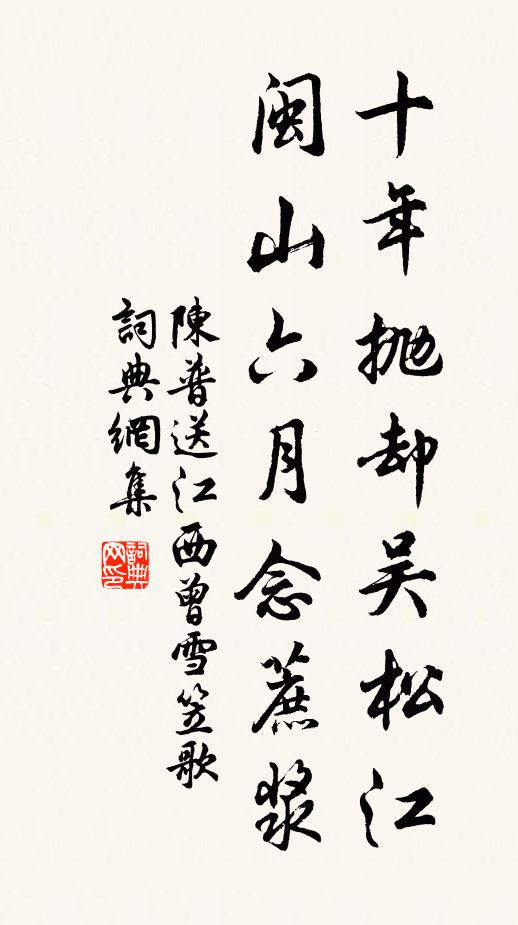 十年拋却吴松江
閩山六月念蔗漿
陳普送江西曾雪笠歌
詞典網集
詞典网印